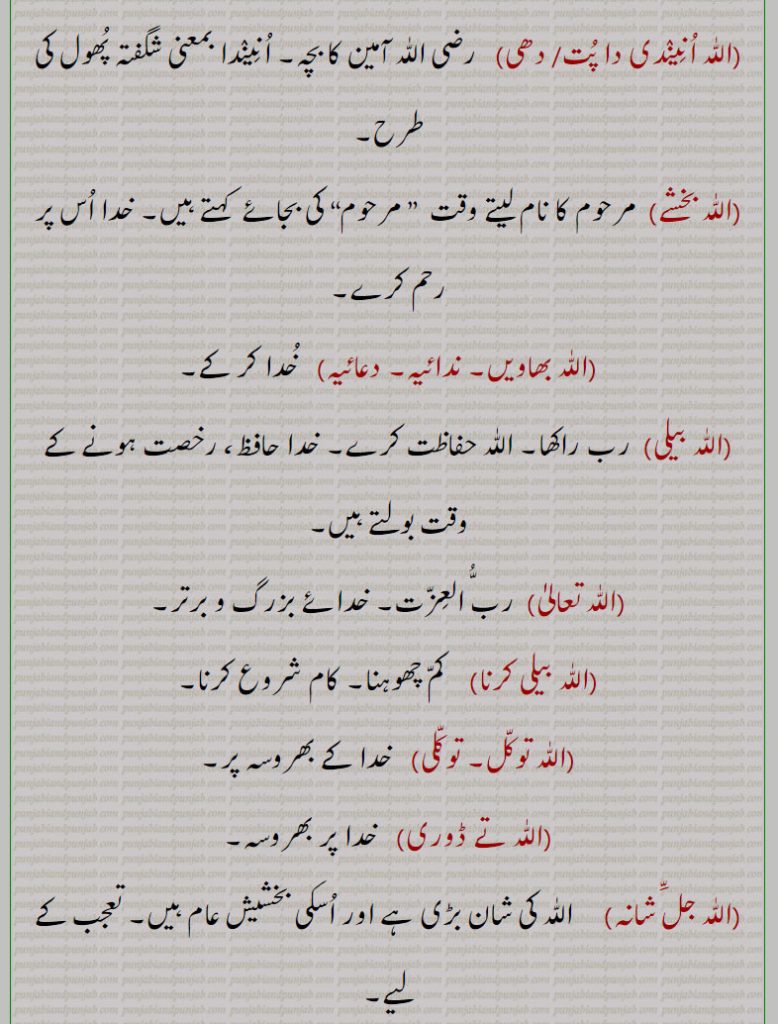 (اللہ اُنِیْندی دا پُت/ دھی) رضی اللہ آمین کا بچہ۔ اُنِیْندا بمعنی شگفتہ پُھول کی
طرح۔
(اللہ بخشے) مرحوم کا نام لیتے وقت ”مرحوم“ کی بجائے کہتے ہیں۔ خدا اُس پر
رحم کرے۔
(اللہ بھاویں۔ ندائیہ۔ دعائیہ) خُدا کر کے۔
(اللہ بیلی) رب راکھا۔ اللہ حفاظت کرے۔ خدا حافظ، رخصت ہونے کے
وقت بولتے ہیں۔
(اللہ تعالیٰ) ربُّ العِزّت۔ خدائے بزرگ و برتر۔
(اللہ بیلی کرنا) کمّ چھوہنا۔ کام شروع کرنا۔
(اللہ توکّل۔ توکّلی) خدا کے بھروسہ پر۔
(اللہ تے ڈوری) خدا پر بھروسہ۔
(اللہ جلِّ شانہ) اللہ کی شان بڑی ہے اور اُسکی بخشیش عام ہیں۔ تعجب کے
لیے۔